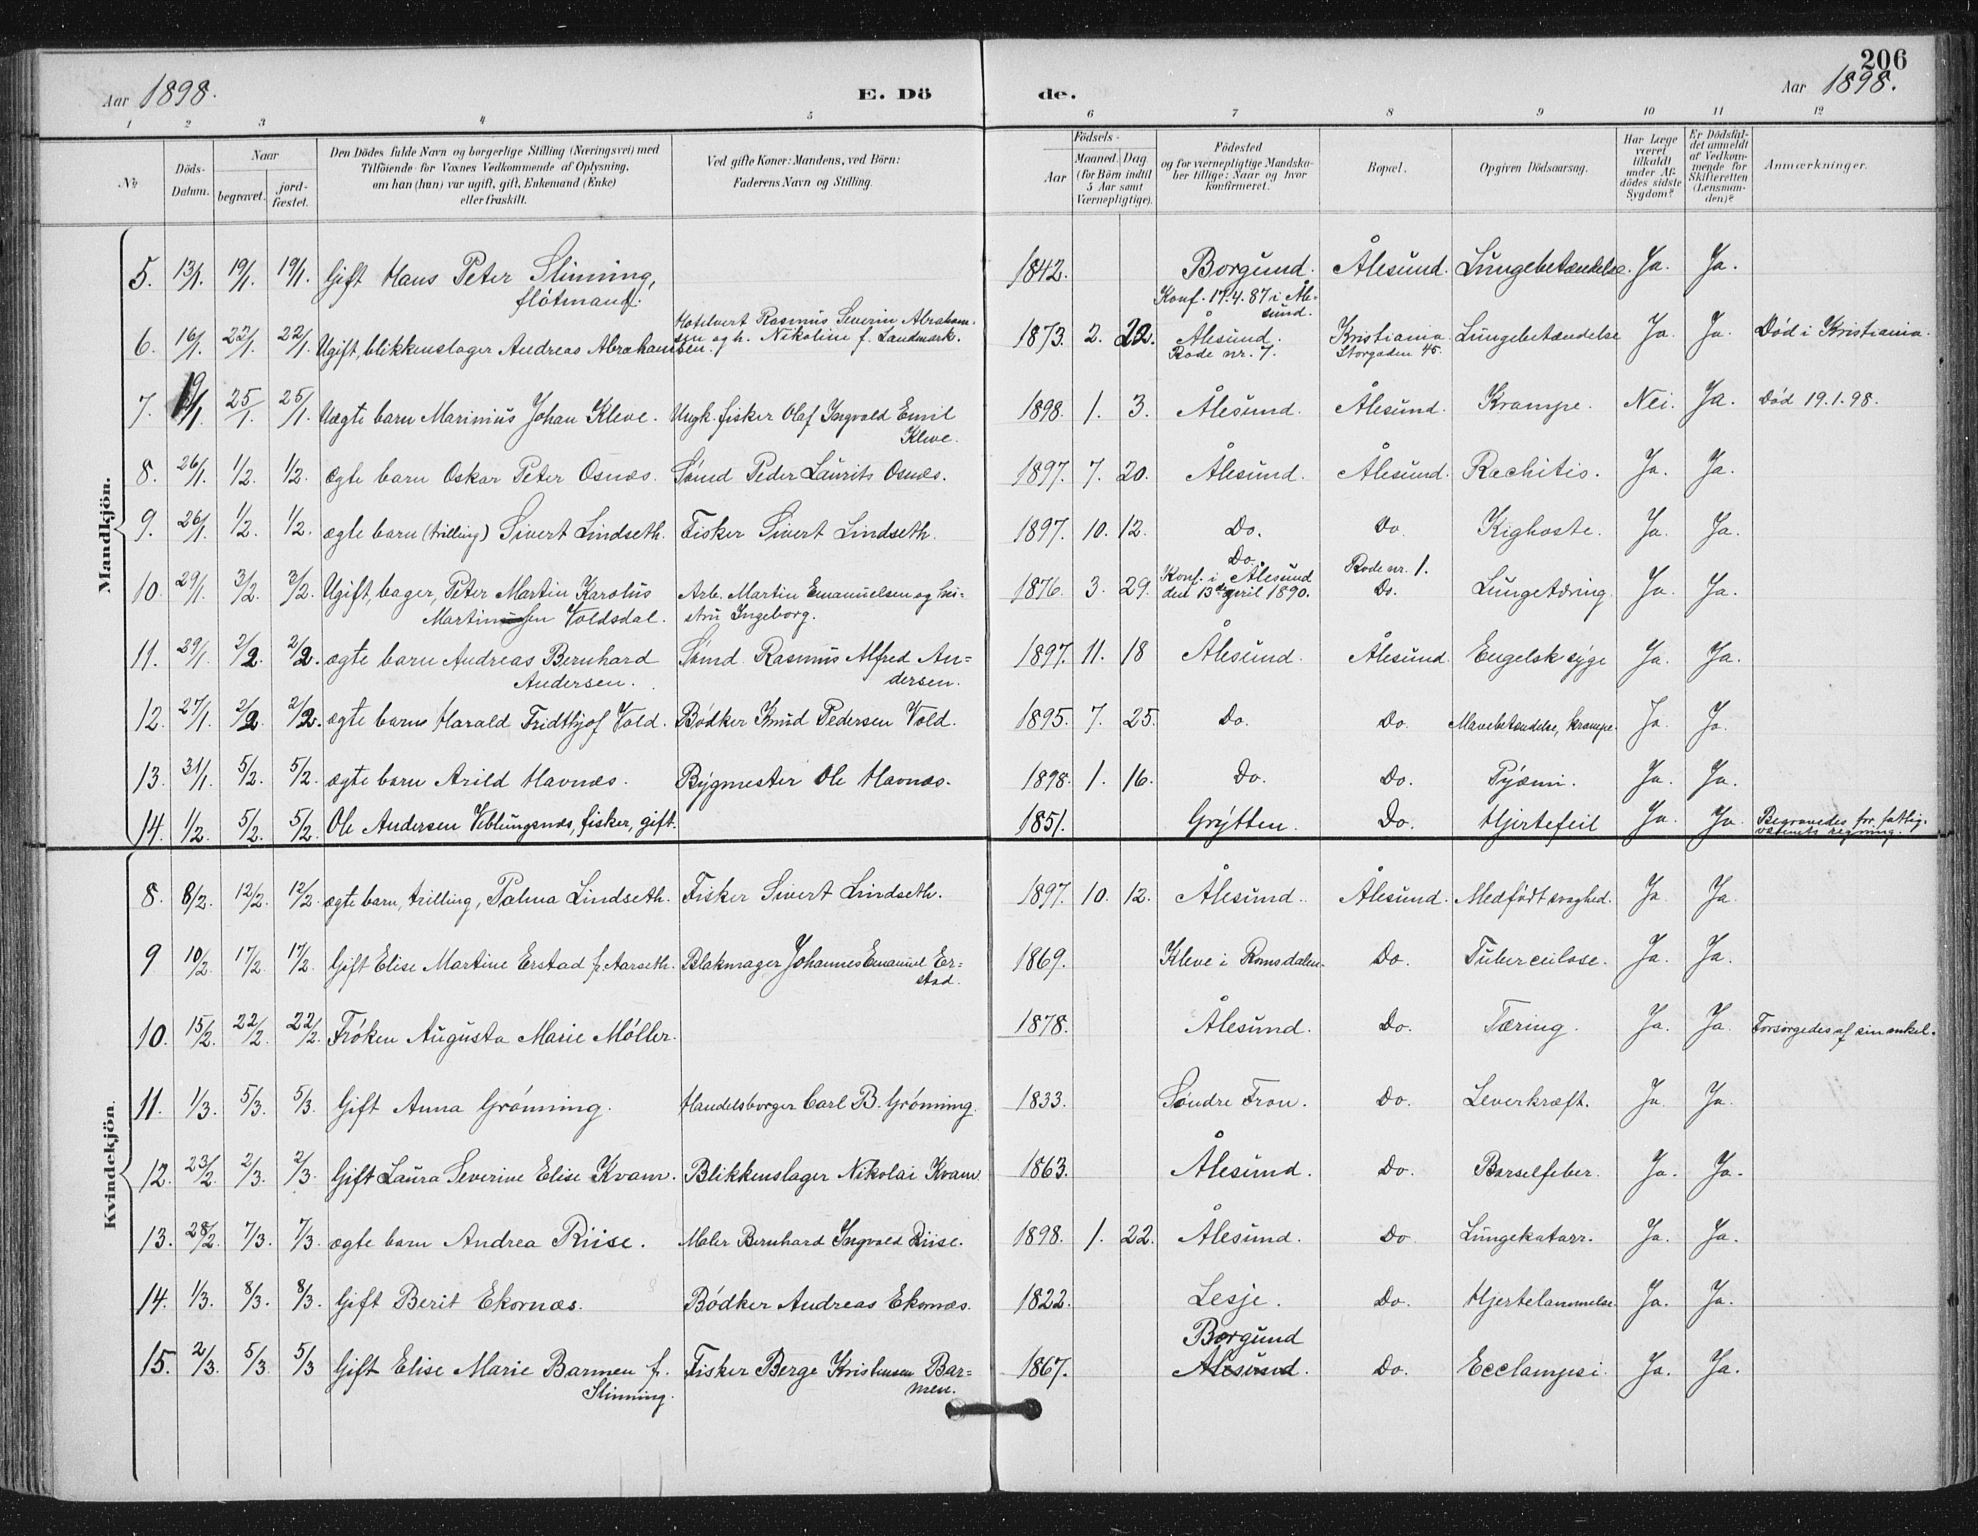 206
Aar 1898. E. Döde. Aar 1898.
1 2 3 4 5 6 7 8 9 10 11 12
No Döds-Datum. Naar begravet. jord-fæstet. Den Dödes fulde Navn og borgerlige Stilling (Næringsvei) med Tilföiende for Voxnes Vedkommende af Oplysning, om han (hun) var ugift, gift, Enkemand (Enke) eller fraskilt. Ved gifte Koner: Mandens, ved Börn: Faderens Navn og Stilling. Födsels- Aar Maaned. Dag (for Börn indtil 5 Aar samt Værnepligtige). Födested og for værnepligtige Mandskaber tillige: Naar og hvor konfirmeret. Bopæl. Opgiven Dödsaarsag. Har Læge været tilkaldt under Afdödes sidste Sygdom? Er Dödsfaldet anmeldt af Vedkommende for Skifteretten (Lensmanden)? Anmærkninger.
Mandkjön.
5. 13/1. 19/1. 19/1. Gift Hans Peter Slinning, fløtmand. 1842. Borgund. Ålesund. Lungebetændelse. Ja. Ja.
6. 16/1. 22/1. 22/1. Ugift, blikkenslager Andreas Abrahamsen. Hotelvert Rasmus Severin Abrahamsen og h. Nikoline f. Landmark. 1873. 2. 22. Konf. 17.4.87 i Ålesund. Ålesund. Rode nr. 7. Kristiania Storgaden 45. Lungebetændelse Ja. Ja. Død i Kristiania.
7. 19/1 25/1. 25/1. Uægte barn Marinius Johan Kleve. Ungk. fisker Olaf Ingvald Emil Kleve. 1898. 1. 3. Ålesund. Ålesund. Krampe. Nei. Ja. Død 19.1.98.
8. 26/1. 1/2. 1/2. ægte barn Oskar Peter Osnæs. Sømd Peder Laurits Osnæs. 1897. 7. 20. Ålesund. Ålesund. Rachitis. Ja. Ja.
9. 26/1. 1/2. 1/2. ægte barn (trilling) Sivert Lindseth. Fisker Sivert Lindseth. 1897. 10. 12. Do. Do. Kighoste. Ja. Ja.
10. 29/1. 3/2. 3/2. Ugift, bager, Peter Martin Karolus Martinussen Voldsdal. Arb. Martin Emanuelsen og hustru Ingeborg. 1876. 3. 29. Do. Konf. i Ålesund den 13de april 1890. Rode nr. 1. Do. Lungetæring. Ja. Ja.
11. 29/1. 2/2. 2/2. ægte barn Andreas Bernhard Andersen. Sømd. Rasmus Alfred Andersen. 1897. 11. 18 Ålesund. Ålesund. Engelsk syge Ja. Ja.
12. 27/1. 2/2 2/2. ægte barn Harald Fridthjof Vold. Bødker Knud Pedersen Vold. 1895. 7. 25. Do. Do. Mavebetændelse, krampe. Ja. Ja.
13. 31/1. 5/2. 5/2. ægte barn Arild Havnæs. Bygmester Ole Havnæs. 1898. 1. 16. Do. Do. Pyæmi. Ja. Ja.
14. 1/2. 5/2. 5/2. Ole Andersen Veblungsnæs, fisker, gift. 1851. Grytten. Do. Hjertefeil Ja. Ja. Begravedes for fattigvæsenets regning.
Kvindekjön.
8. 8/2. 12/2. 12/2. ægte barn, trilling, Palma Lindseth. Fisker Sivert Lindseth. 1897. 10. 12. Ålesund. Ålesund. Medfødt svaghed. Ja. Ja.
9 10/2. 17/2. 17/2. Gift Elise Martine Erstad f. Aarseth. Blakmager Johannes Emanuel Erstad. 1869. Kleve i Romsdalen. Do. Tuberculose. Ja. Ja.
10. 15/2. 22/2. 22/2. Frøken Augusta Marie Møller. 1878. Ålesund. Do. Tæring. Ja. Ja. Forsørgedes af sin onkel.
11. 1/3. 5/3. 5/3. Gift Anna Grønning. Handelsborger Carl B. Grønning. 1833. Søndre Fron. Do. Leverkræft. Ja. Ja.
12. 23/2. 2/3. 2/3. Gift Laura Severine Elise Kvam. Blikkenslager Nikolai Kvam. 1863. Ålesund. Do. Barselfeber. Ja. Ja.
13. 28/2. 7/3. 7/3. ægte barn Andrea Riise. Maler Bernhard Ingvald Riise. 1898. 1. 22. Ålesund. Do Lungekatarr. Ja. Ja.
14. 1/3. 8/3. 8/3. Gift Berit Ekornæs. Bødker Andreas Ekornæs. 1822. Lesje. Do. Hjertelammelse. Ja. Ja.
15. 2/3. 5/3. 5/3 Gift Elise Marie Barmen f. Slinning. Fisker Berge Kristensen Barmen. 1867. Borgund Ålesund. Do. Ecclampsi. Ja. Ja.